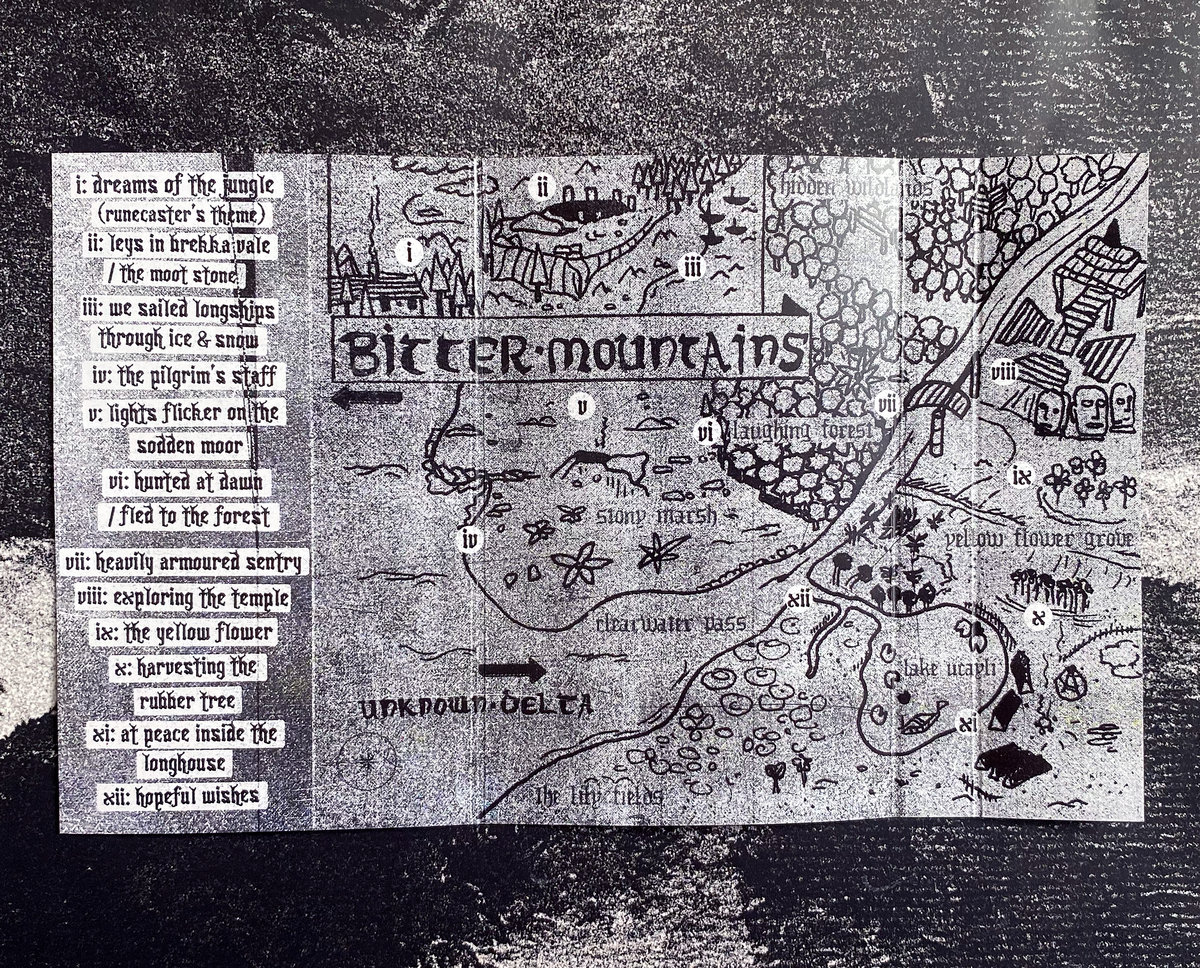 i: dreams of the jungle
(runecaster's theme)
ii: leys in brekka vale
/ the moot stone
iii: we sailed longships
through ice & snow
iv: the pilgrim's staff
v: lights flicker on the
sodden moor
vi: hunted at dawn
/ fled to the forest
vii: heavily armoured sentry
viii: exploring the temple
ix: the yellow flower
x: harvesting the
rubber tree
xi: at peace inside the
longhouse
xii: hopeful wishes
i
ii
iii
hidden wildlands
Bitter·mountains
v
vi
laughing forest
vii
viii
ix
iv
stony marsh
yellow flower grove
clearwater pass
xii
x
lake ucayli
xi
unknown·delta
the lily fields